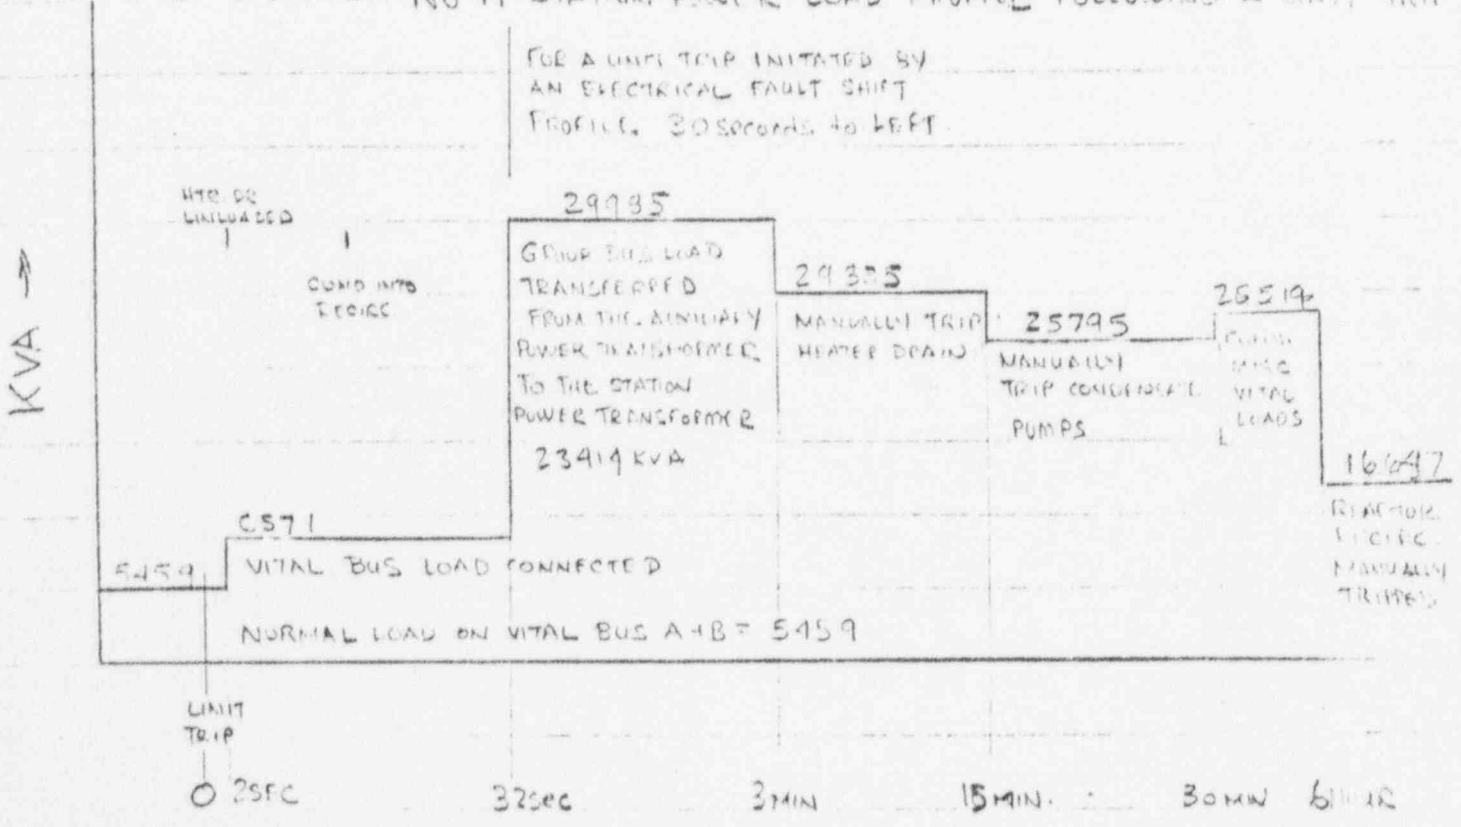 NO 11 STATION POWER LOAD PROFILE FOLLOWING A UNIT TRIP
FOR A UNIT TRIP INITATED BY
AN ELECTRICAL FAULT SHIFT
PROFILE. 30 seconds to LEFT
HTR. DR
UNLOADED
COND INTO
RECIRC
KVA →
29985
GROUP BUS LOAD
TRANSFERRED
FROM THE AUXILIARY
POWER TRANSFORMER
TO THE STATION
POWER TRANSFORMER
23414 KVA
29385
MANUALLY TRIP
HEATER DRAIN
25795
MANUALLY
TRIP CONDENSATE
PUMPS
26519
MISC
VITAL
LOADS
16647
REACTOR
RECIRC
MANUALLY
TRIPPED
6571
VITAL BUS LOAD CONNECTED
5459
NORMAL LOAD ON VITAL BUS A+B = 5459
UNIT
TRIP
0 2SEC 32sec 3MIN 15MIN. 30MIN 6HOUR